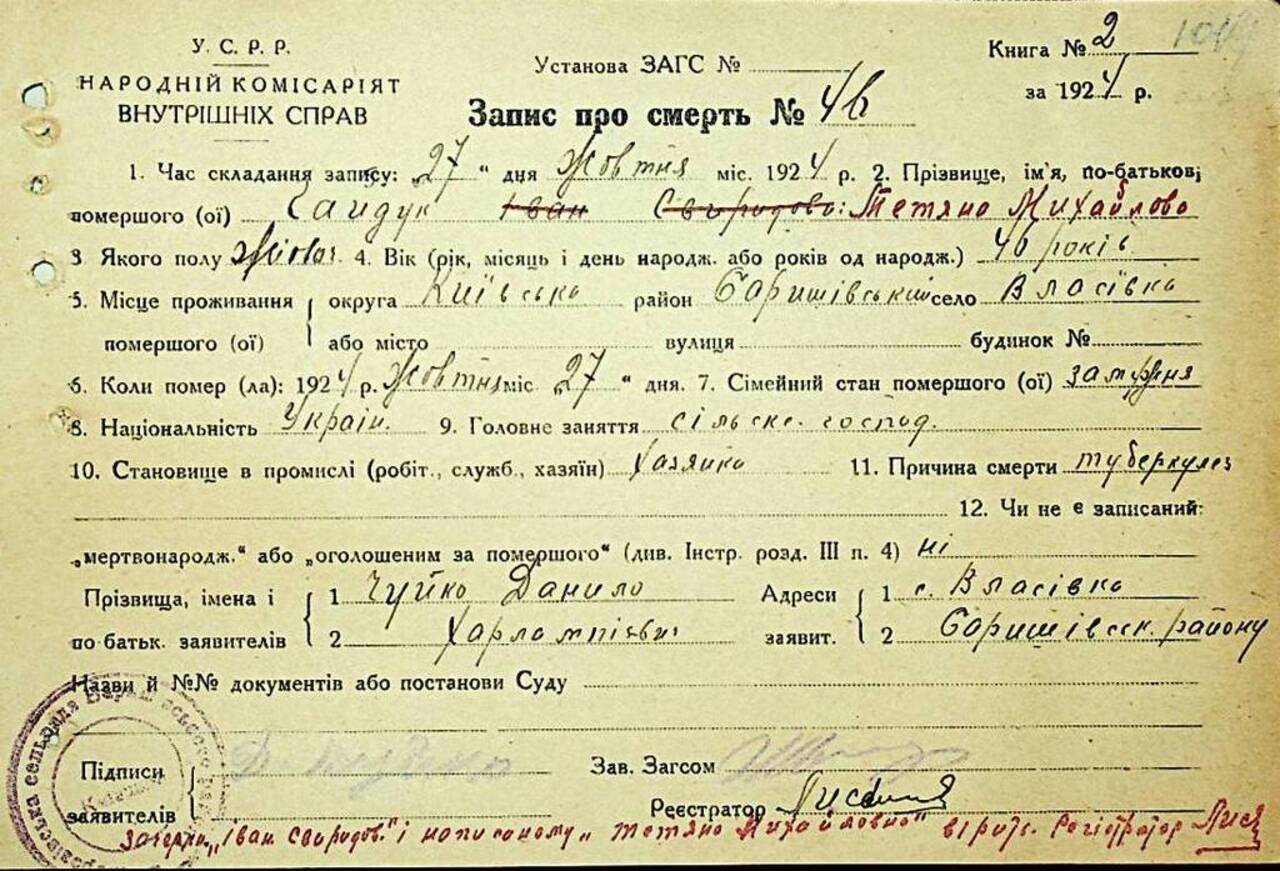 У. С. Р. Р.
НАРОДНІЙ КОМІСАРІЯТ
ВНУТРІШНІХ СПРАВ
Установа ЗАГС №
Книга № 2
за 1924 р.
Запис про смерть №
1. Час складання запису: „27“ дня Жовтня міс. 1924 р. 2. Прізвище, ім'я, по-батькові
помершого (ої) Гайдук Іван Тетяна Михайлова
3. Якого полу 4. Вік (рік, місяць і день народж. або років од народж.) 46 років
5. Місце проживання помершого (ої) { округа Київська район Баришівський село Власівка
або місто вулиця будинок №
6. Коли помер (ла): 1924 р. Жовтня міс. „27“ дня. 7. Сімейний стан помершого (ої) замужня
8. Національність Україн. 9. Головне заняття сільськ. господ.
10. Становище в промислі (робіт., служб., хазяїн) Хазяйка 11. Причина смерти туберкулез
12. Чи не є записаний:
„мертвонародж.“ або „оголошеним за помершого“ (див. Інстр. розд. III п. 4) ні
Прізвища, імена і по батьк. заявителів { 1 Чуйко Данило Адреси заявит. { 1 с. Власівка
2 Харлампієвич 2 Баришівськ. району
Назви й №№ документів або постанови Суду
Підписи заявителів
Зав. Загсом
Реєстратор
„Іван і написаному „Тетяна Михайловна“ Регістратор